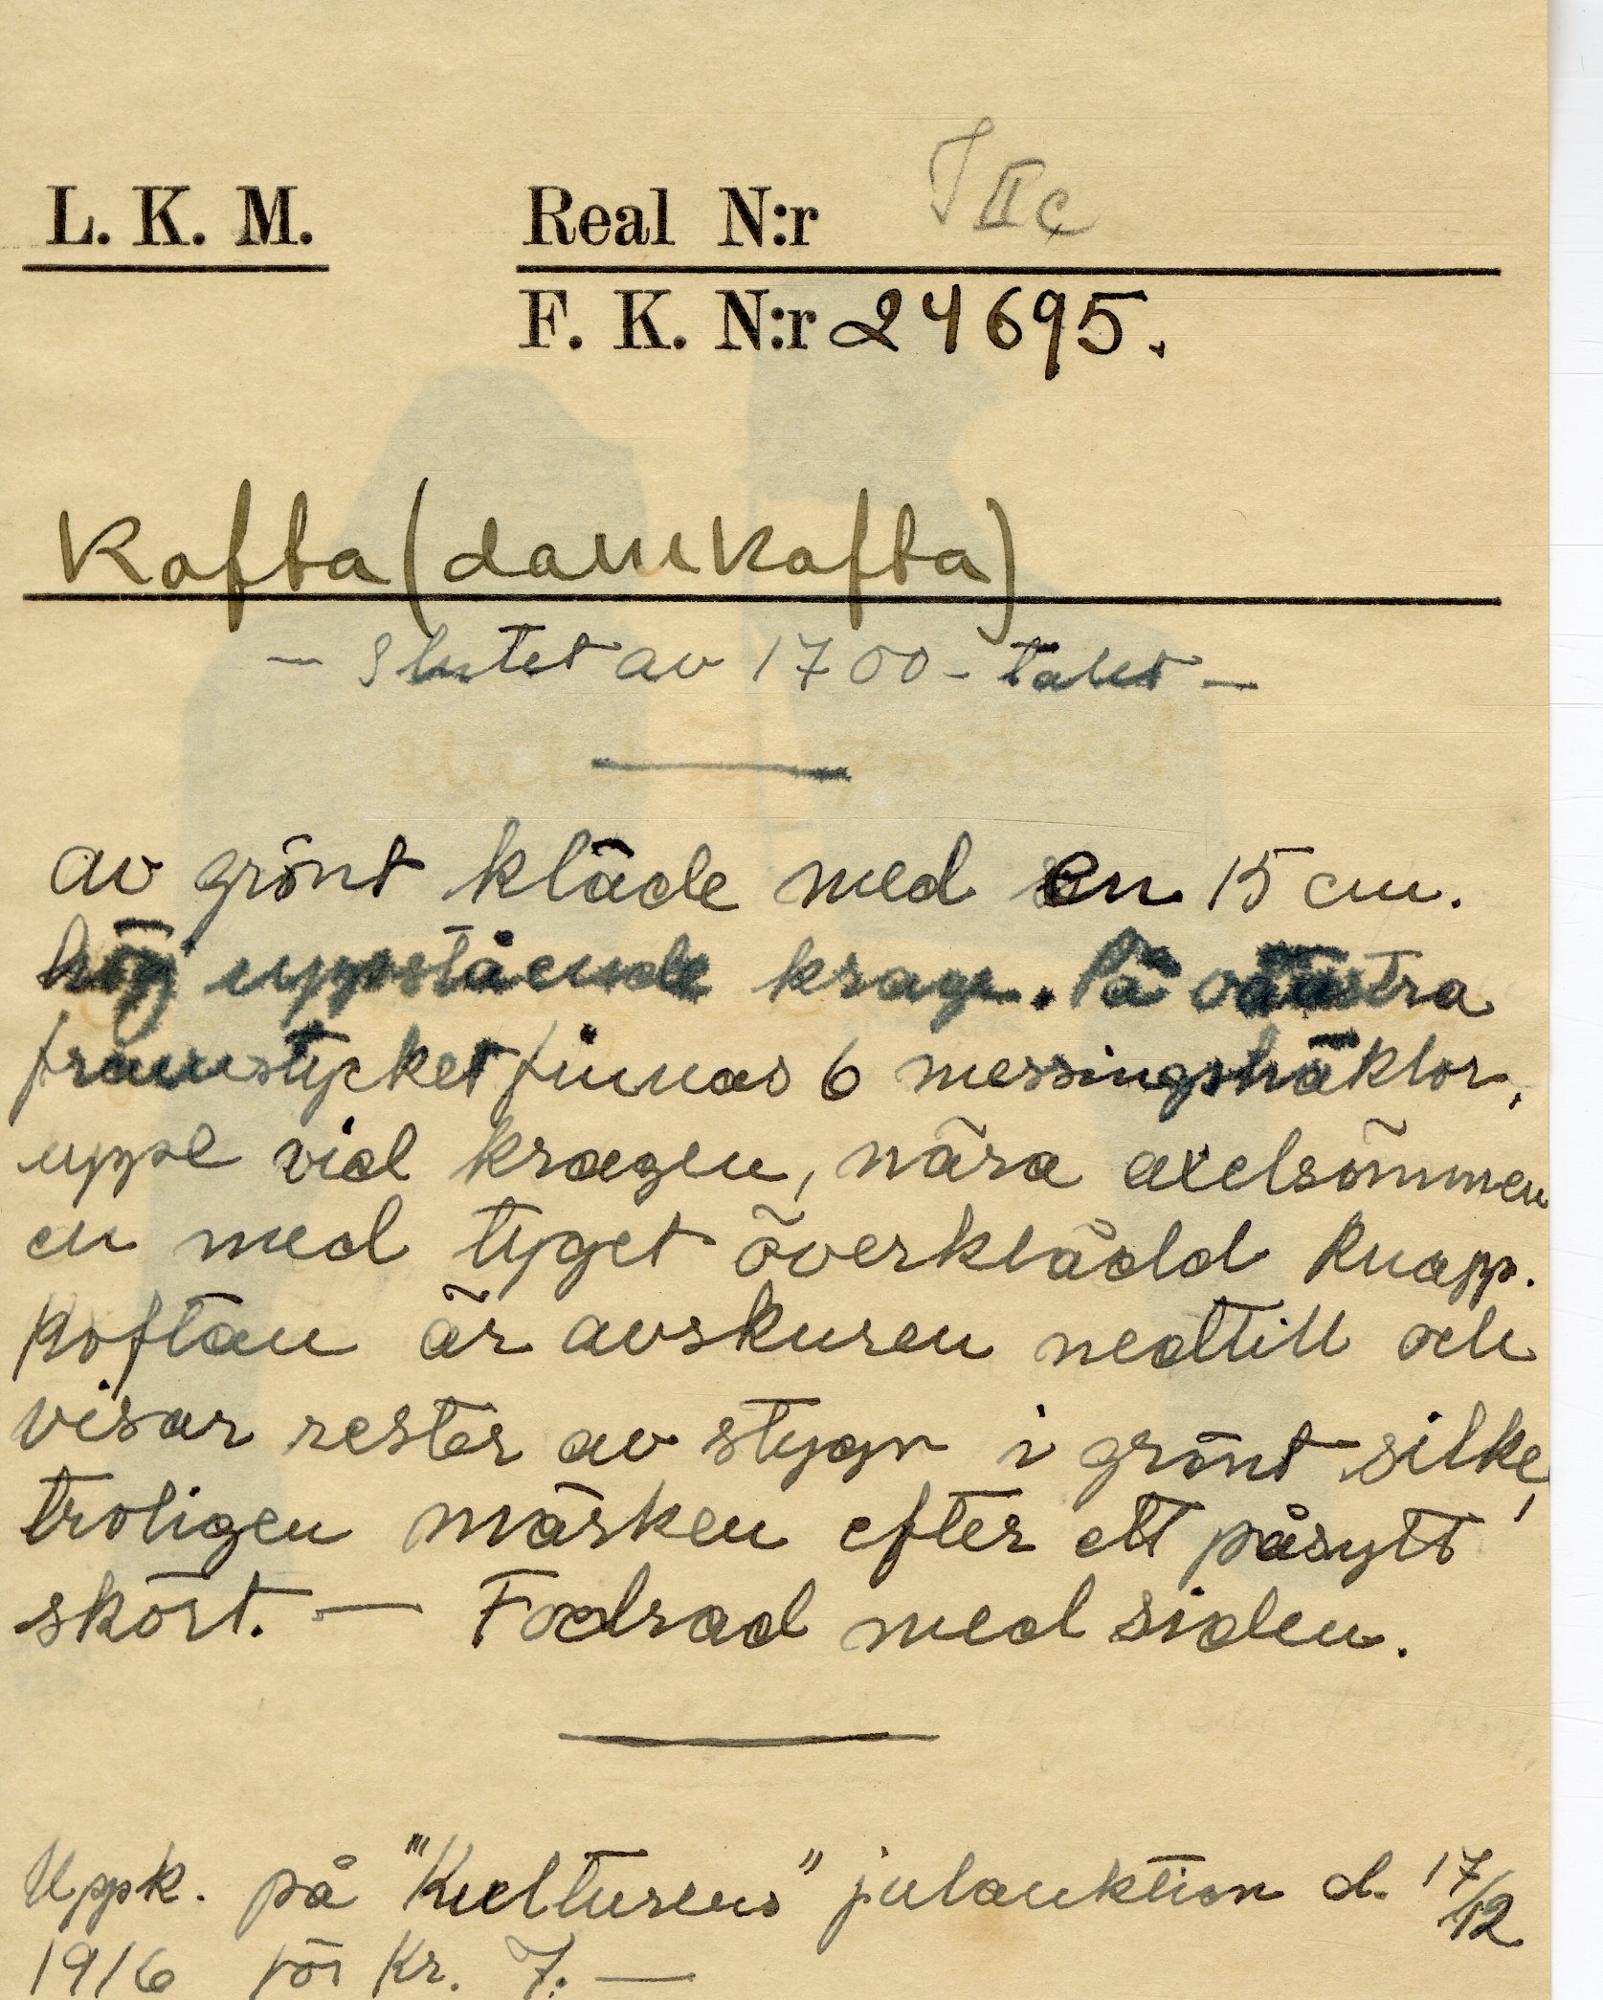 L. K. M. Real N:r T II c
F. K. N:r 24695.
Kofta (damkofta)
— Slutet av 1700-talet —
av grönt kläde med en 15 cm.
hög uppstående krage. På vänstra
framstycket finnas 6 messingshäktor,
uppe vid kragen, nära axelsömmen
en med tyget överklädd knapp.
Koftan är avskuren nedtill och
visar rester av stygn i grönt silke,
troligen märken efter ett påsytt
skört. — Fodrad med siden.
Uppk. på "Kulturens" julauktion d. 17/12
1916 för Kr. 7. —